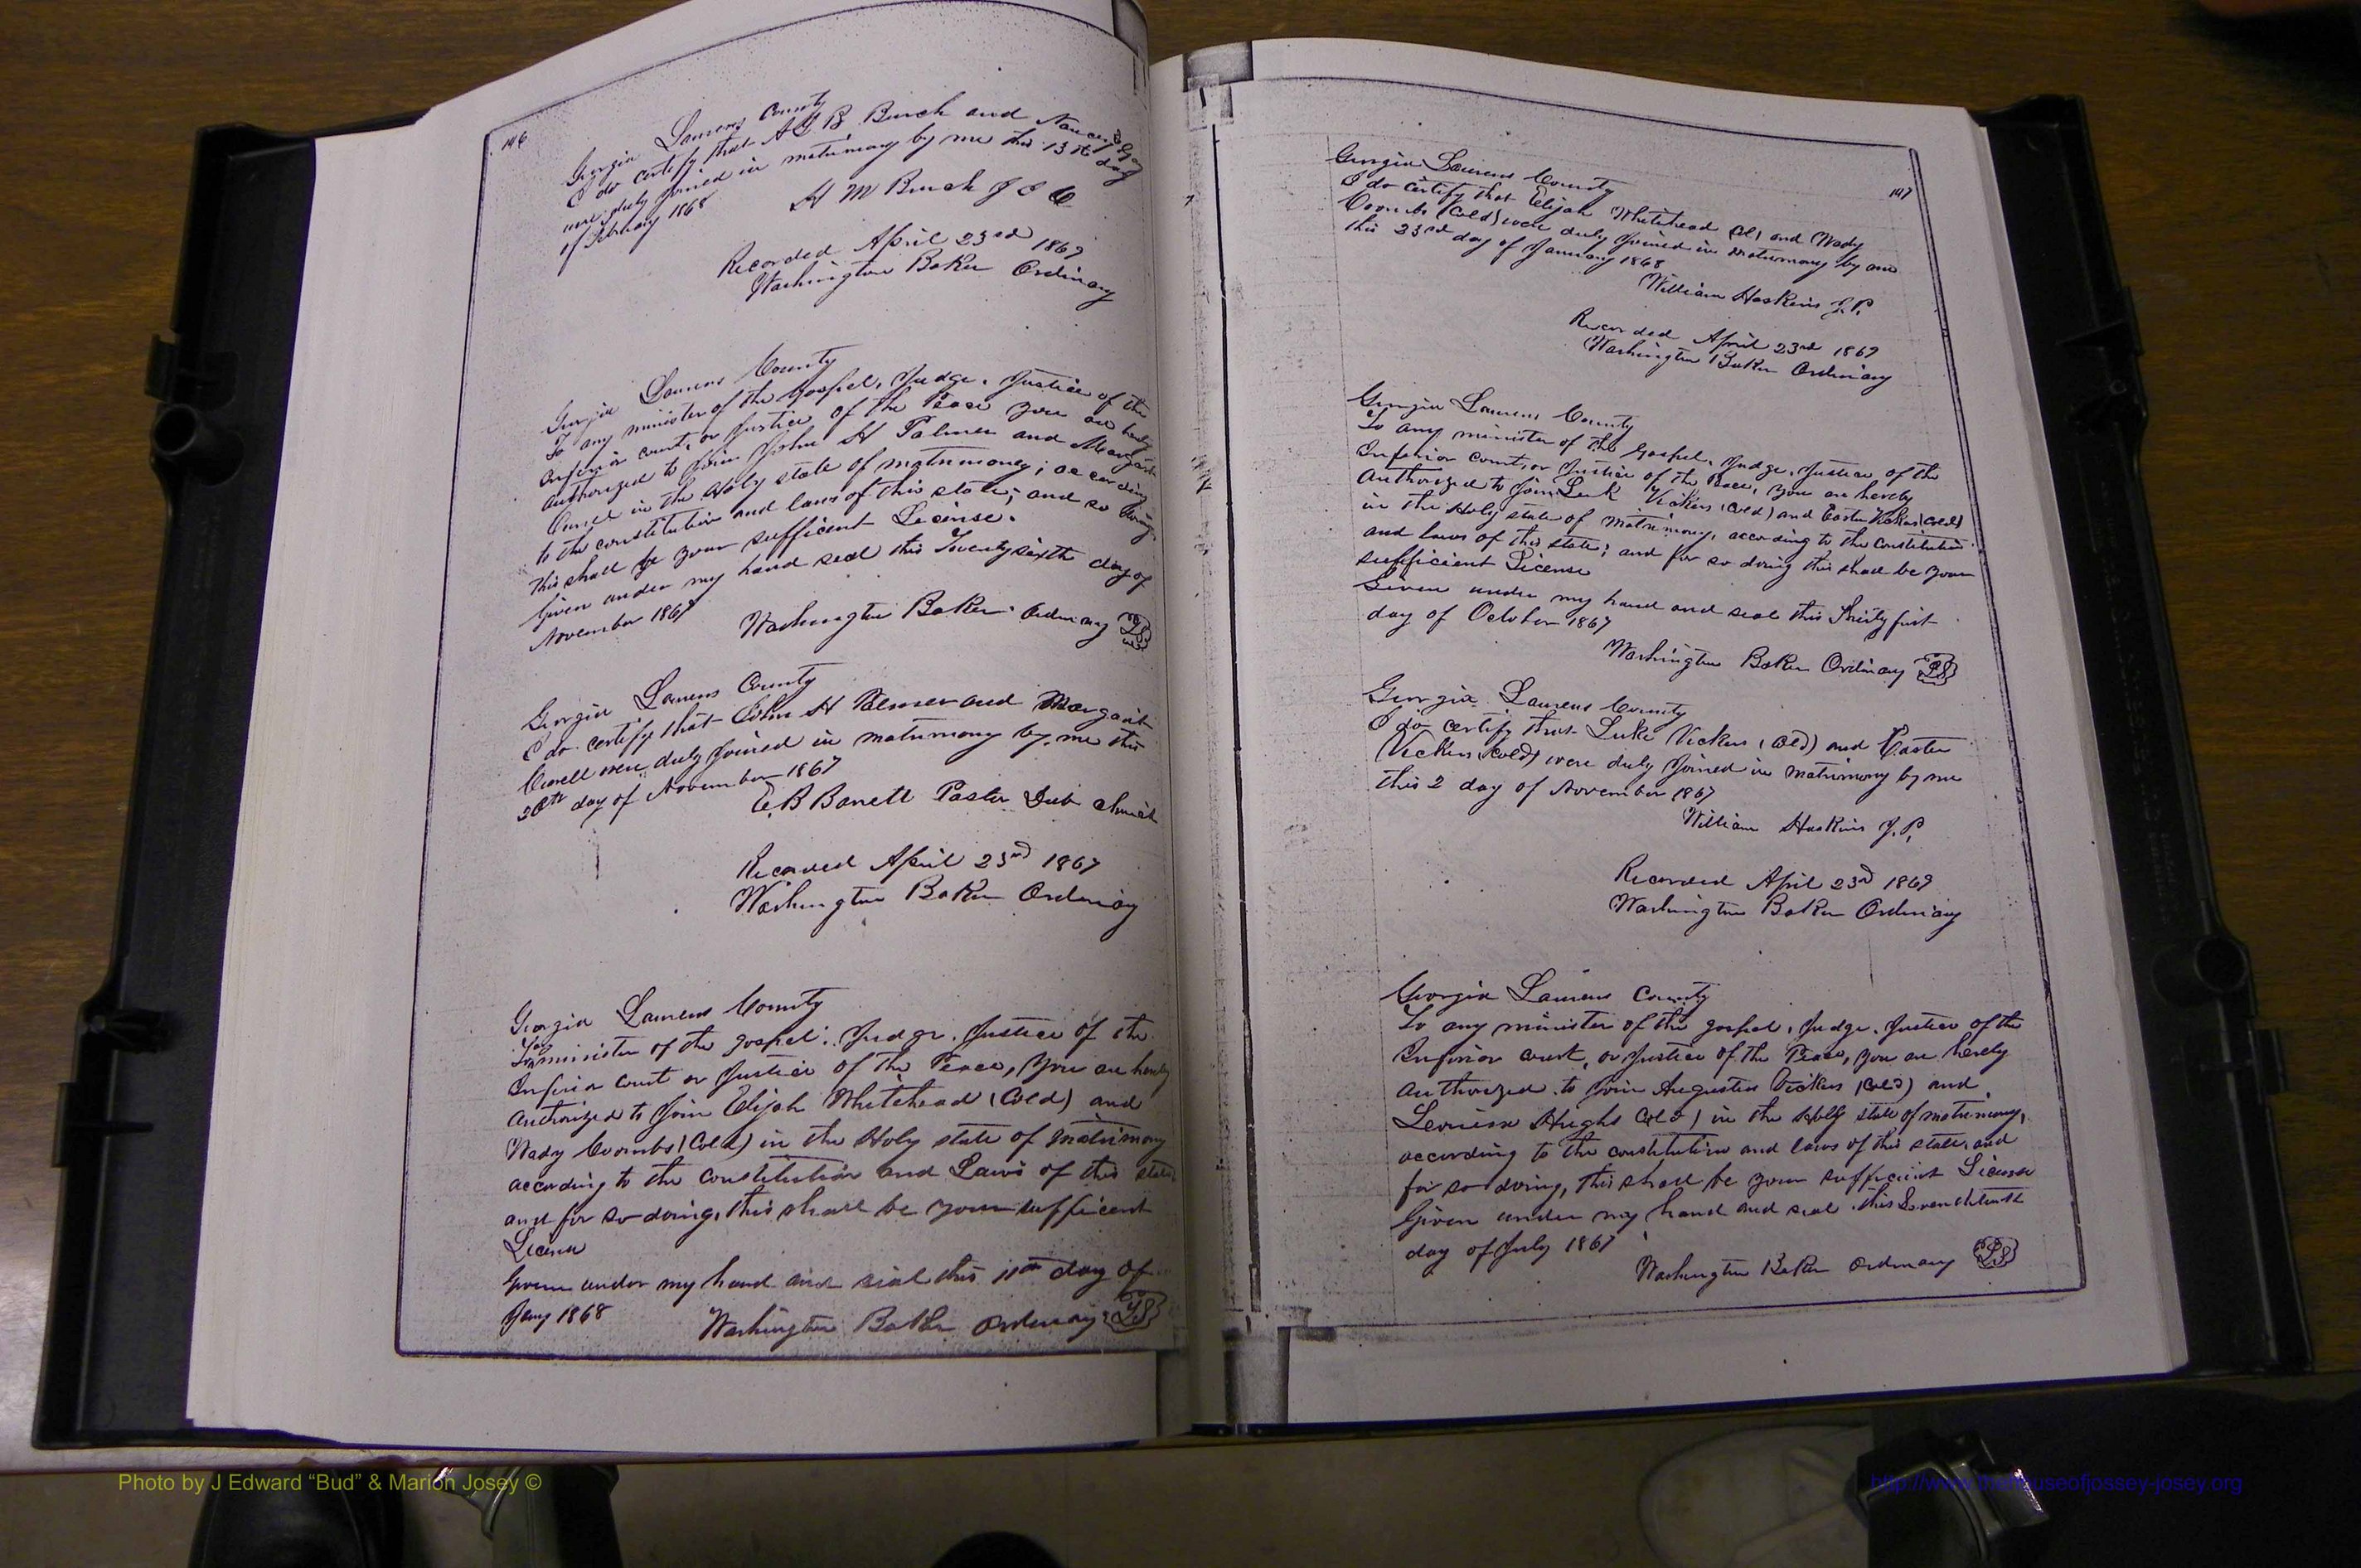 146
Georgia Laurens County
I do certify that A G B Burch and Nancy
were duly joined in matrimony by me this 13th day
of February 1868
H M Burch J I C
Recorded April 23rd 1869
Washington Baker Ordinary
Georgia Laurens County
To any minister of the Gospel, Judge, Justice of the
Inferior court, or Justice of the Peace you are hereby
authorized to join John H Palmer and Margaret
in the Holy state of matrimony; according
to the constitution and laws of this state; and so doing
this shall be your sufficient License.
Given under my hand seal this Twenty sixth day of
November 1867
Washington Baker Ordinary LS
Georgia Laurens County
I do certify that John H Palmer and Margaret
were duly joined in matrimony by me this
day of November 1867
E. B Barrett Pastor Dub church
Recorded April 23rd 1869
Washington Baker Ordinary
Georgia Laurens County
To any minister of the gospel, Judge, Justice of the
Inferior Court or Justice of the Peace, you are hereby
authorized to join Elijah Whitehead (Cold) and
Wady Coombs (Cold) in the Holy state of matrimony
according to the constitution and Laws of this state,
and for so doing, this shall be your sufficent
License
Given under my hand and seal this 11th day of
Jany 1868
Washington Baker Ordinary LS
147
Georgia Laurens County
I do certify that Elijah Whitehead and Wady
Coombs (Cold) were duly joined in matrimony by me
this 23rd day of January 1868
William Haskins J.P.
Recorded April 23rd 1869
Washington Baker Ordinary
Georgia Laurens County
To any minister of the Gospel, Judge, Justice of the
Inferior court, or Justice of the Peace, you are hereby
Authorized to join Luk Vickers (Cold) and Easter Vickers (Cold)
in the Holy state of matrimony, according to the constitution
and laws of this state; and for so doing this shall be your
sufficient License
Given under my hand and seal this Thirty first
day of October 1867
Washington Baker Ordinary LS
Georgia Laurens County
I do certify that Luke Vickers (Cold) and Easter
Vickers (Cold) were duly joined in matrimony by me
this 2 day of November 1867
William Haskins J.P.
Recorded April 23rd 1869
Washington Baker Ordinary
Georgia Laurens County
To any minister of the gospel, Judge, Justice of the
Inferior court, or Justice of the Peace, you are hereby
authorized to join Augustus Vickers (Cold) and
Louisa Hughs Cold) in the Holy state of matrimony,
according to the constitution and laws of this state, and
for so doing, this shall be your sufficient License
Given under my hand and seal this Seventeenth
day of July 1867
Washington Baker Ordinary LS
Photo by J Edward “Bud” & Marion Josey ©
http://www.thehouseofjossey-josey.org